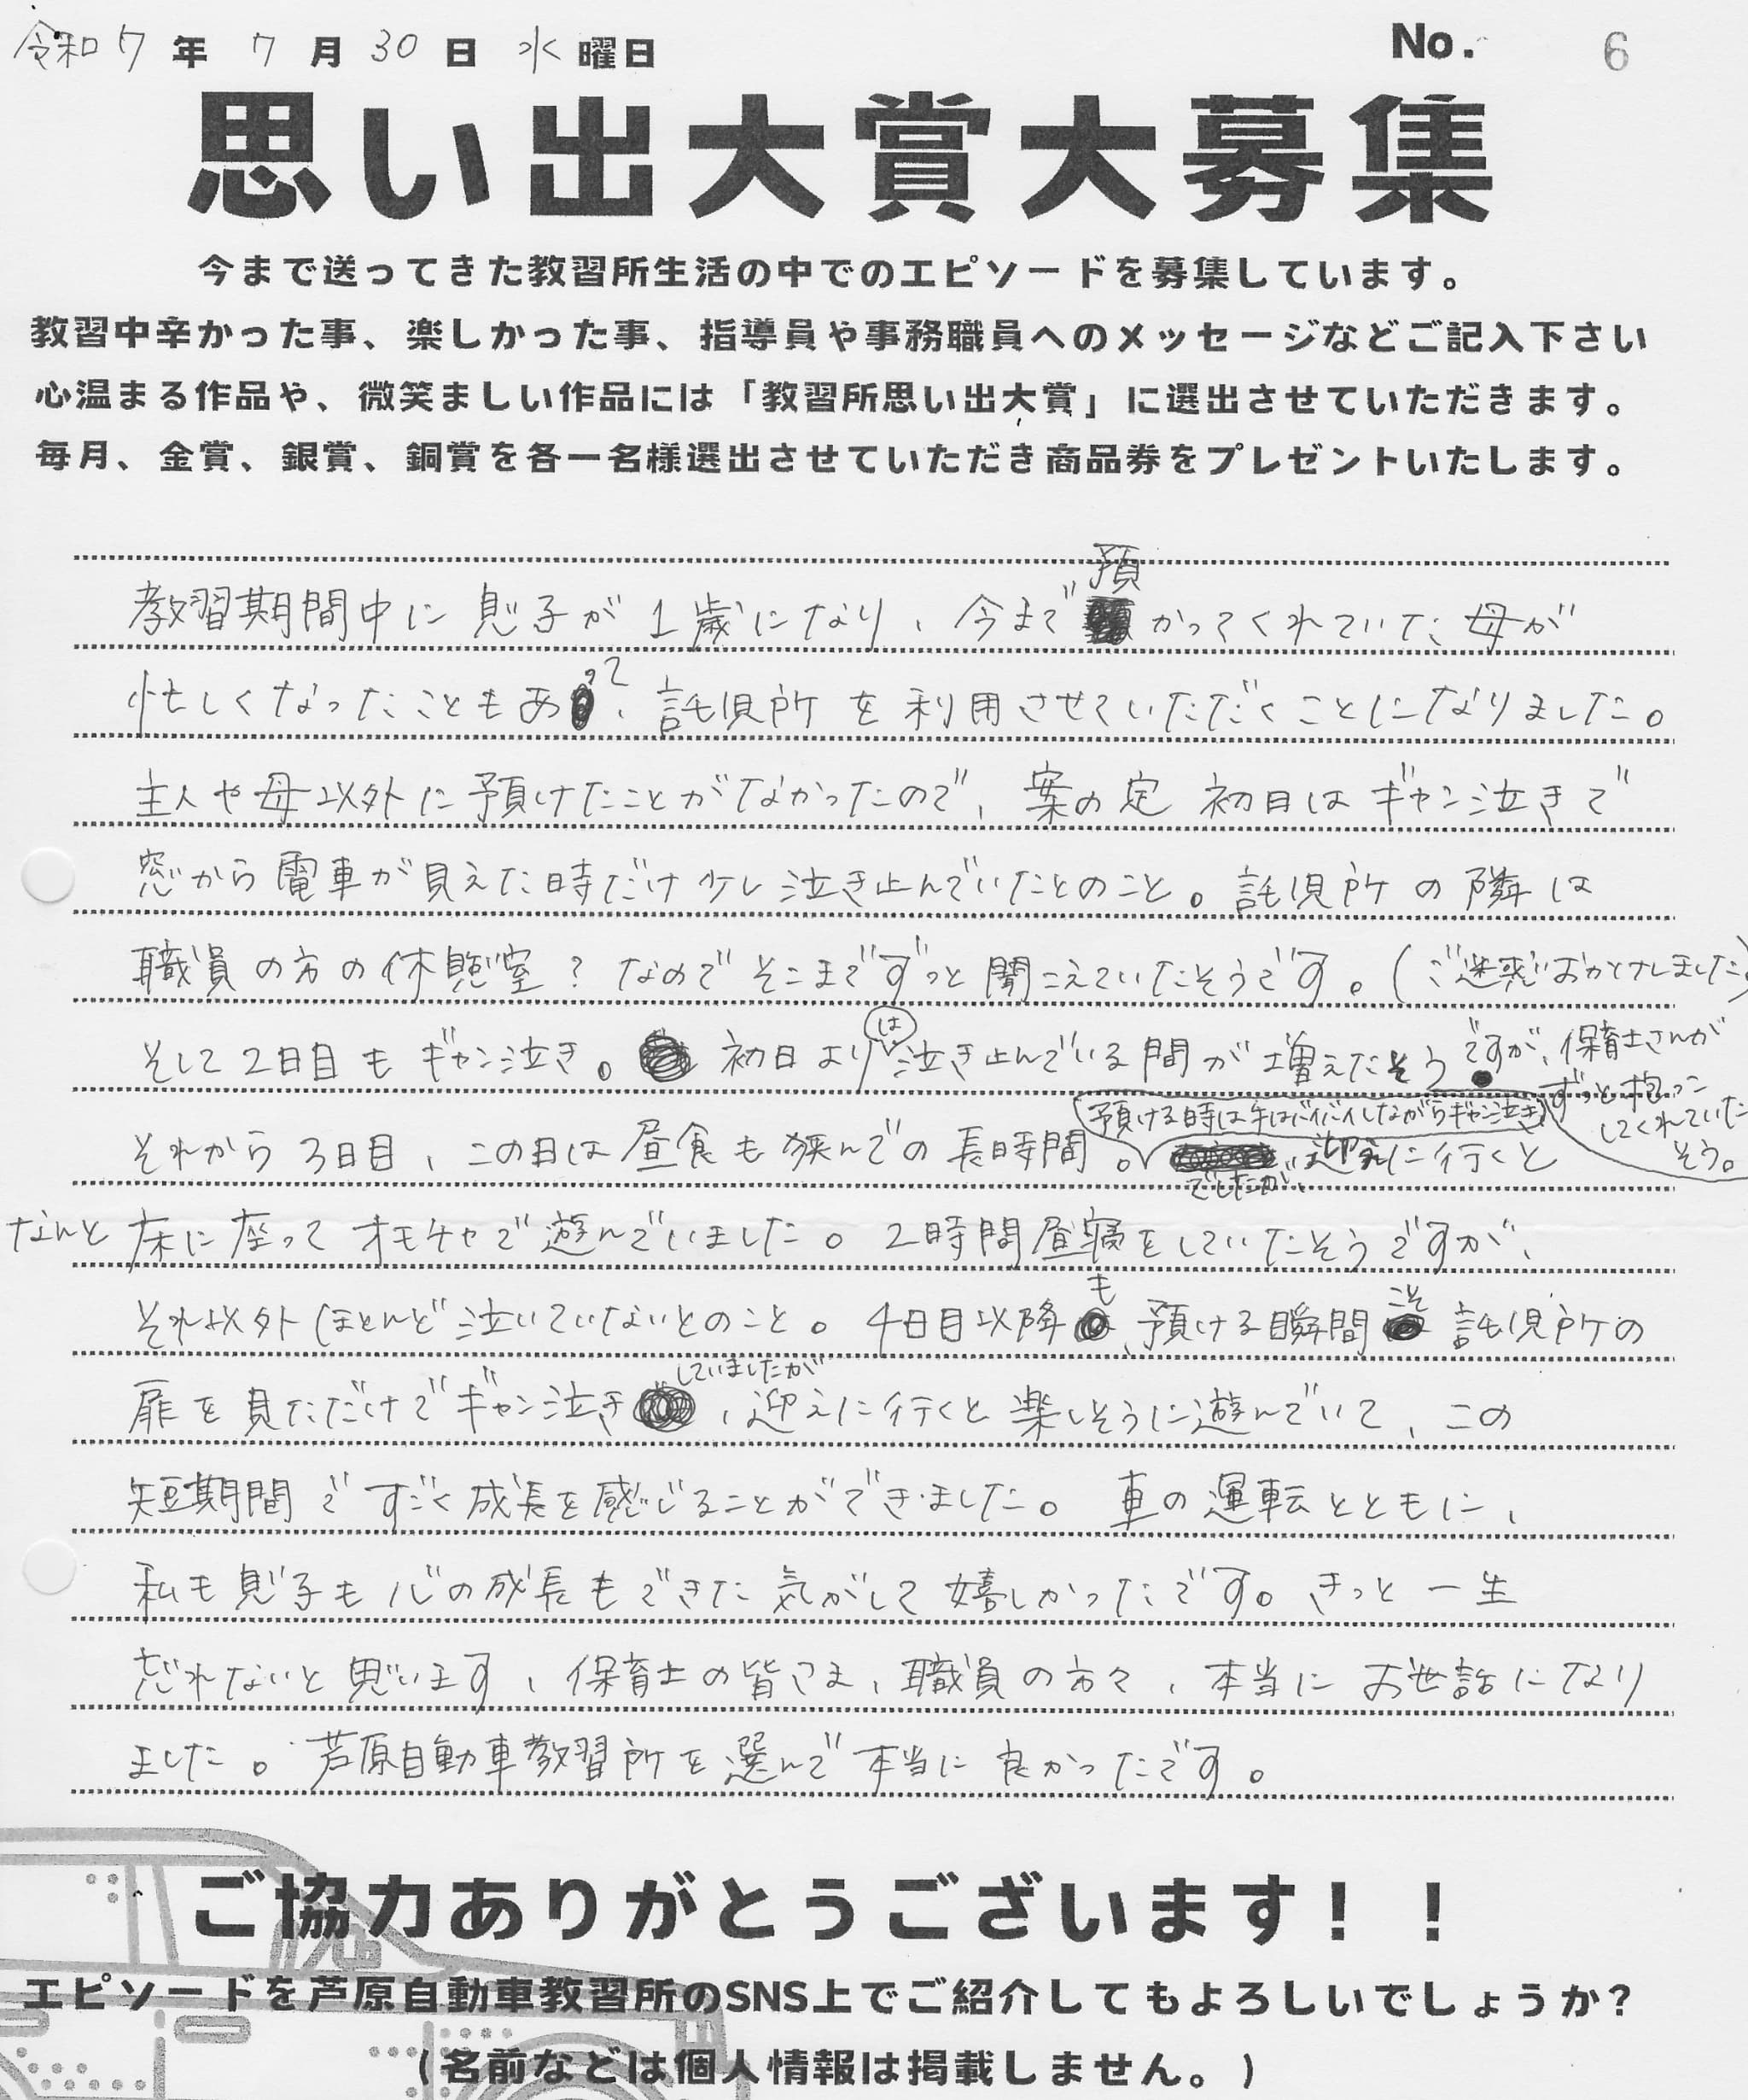 令和7年 7月30日 水曜日 No. 6
思い出大賞大募集
今まで送ってきた教習所生活の中でのエピソードを募集しています。
教習中辛かった事、楽しかった事、指導員や事務職員へのメッセージなどご記入下さい
心温まる作品や、微笑ましい作品には「教習所思い出大賞」に選出させていただきます。
毎月、金賞、銀賞、銅賞を各一名様選出させていただき商品券をプレゼントいたします。
教習期間中に息子が1歳になり、今まで預かってくれていた母が
忙しくなったこともあって、託児所を利用させていただくことになりました。
主人や母以外に預けたことがなかったので、案の定 初日はギャン泣きで
窓から電車が見えた時だけ少し泣き止んでいたとのこと。託児所の隣は
職員の方の休憩室?なのでそこまでずっと聞こえていたそうです。(ご迷惑おかけしました)
そして2日目もギャン泣き。初日よりは泣き止んでいる間が増えたそうですが、保育士さんがずっと抱っこしてくれていたそう。
それから3日目、この日は昼食も挟んでの長時間。預ける時は手はバイバイしながらギャン泣きでしたが、迎えに行くと
なんと床に座ってオモチャで遊んでいました。2時間昼寝をしていたそうですが、
それ以外ほとんど泣いていないとのこと。4日目以降も、預ける瞬間こそ託児所の
扉を見ただけでギャン泣きしていましたが、迎えに行くと楽しそうに遊んでいて、この
短期間ですごく成長を感じることができました。車の運転とともに、
私も息子も心の成長もできた気がして嬉しかったです。きっと一生
忘れないと思います、保育士の皆さま、職員の方々、本当にお世話になり
ました。芦原自動車教習所を選んで本当に良かったです。
ご協力ありがとうございます!!
エピソードを芦原自動車教習所のSNS上でご紹介してもよろしいでしょうか?
(名前などは個人情報は掲載しません。)